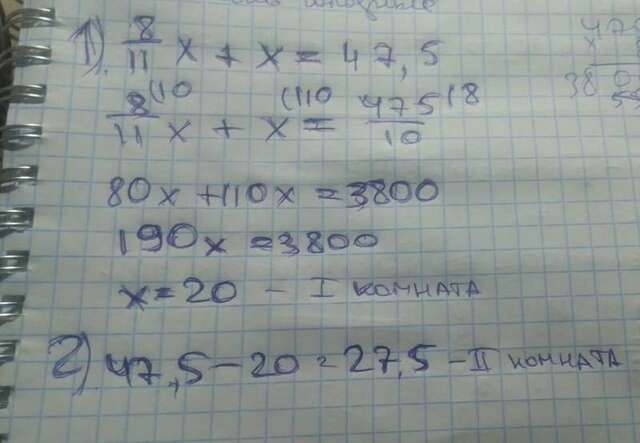 1) 8/11 x + x = 47,5
8/11 (10 x + x (110 = 475/10 (8
80x + 110x = 3800
190x = 3800
x = 20 - I комната
2) 47,5 - 20 = 27,5 - II комната